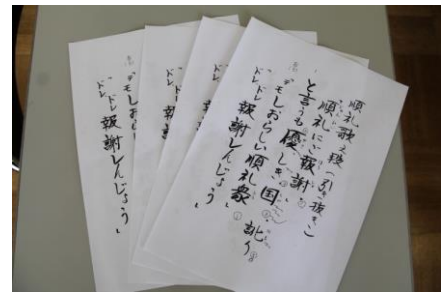 順礼歌之段(引き抜き)
順礼にご報謝
と言うも優しき国訛り
デモしおらしい順礼衆
ドレドレ報謝しんじょう
デモしおら
ドレドレ報謝しんじょう